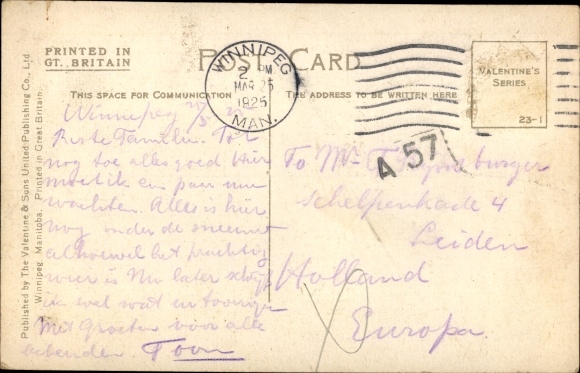 PRINTED IN
GT. BRITAIN
POST CARD
WINNIPEG
2 PM
MAR 25
1925
MAN.
VALENTINE'S
SERIES
23-1
THIS SPACE FOR COMMUNICATION
THE ADDRESS TO BE WRITTEN HERE
A 57
Published by The Valentine & Sons United Publishing Co., Ltd.
Winnipeg, Manitoba. Printed in Great Britain.
Winnipeg
Beste Familie. Tot
nog toe alles goed hier
moet ik een paar uur
wachten. Alles is hier
nog onder de sneeuw
alhoewel het prachtig
weer is Nu later schrijf
ik wel wat
Met Groeten voor alle
bekenden. Toon
To Mr
Schelpenkade 4
Leiden
Holland
Europa.